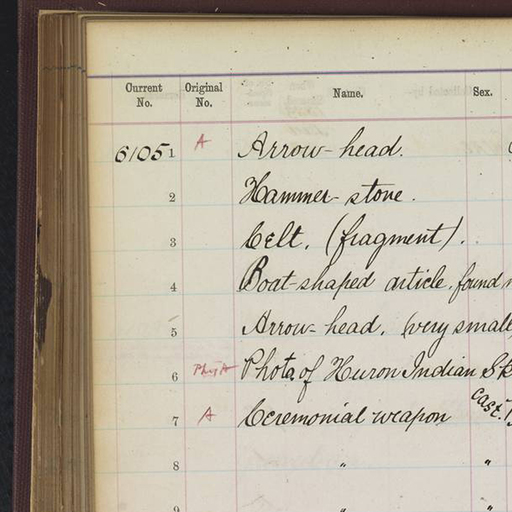 Current No. Original No. Name. Sex.
61051 A Arrow-head.
2 Hammer-stone.
3 Celt. (fragment).
4 Boat-shaped article, found
5 Arrow-head. (very small
6 Photo. of Huron Indian
7 A Ceremonial weapon cast.
8 " "
9 " "